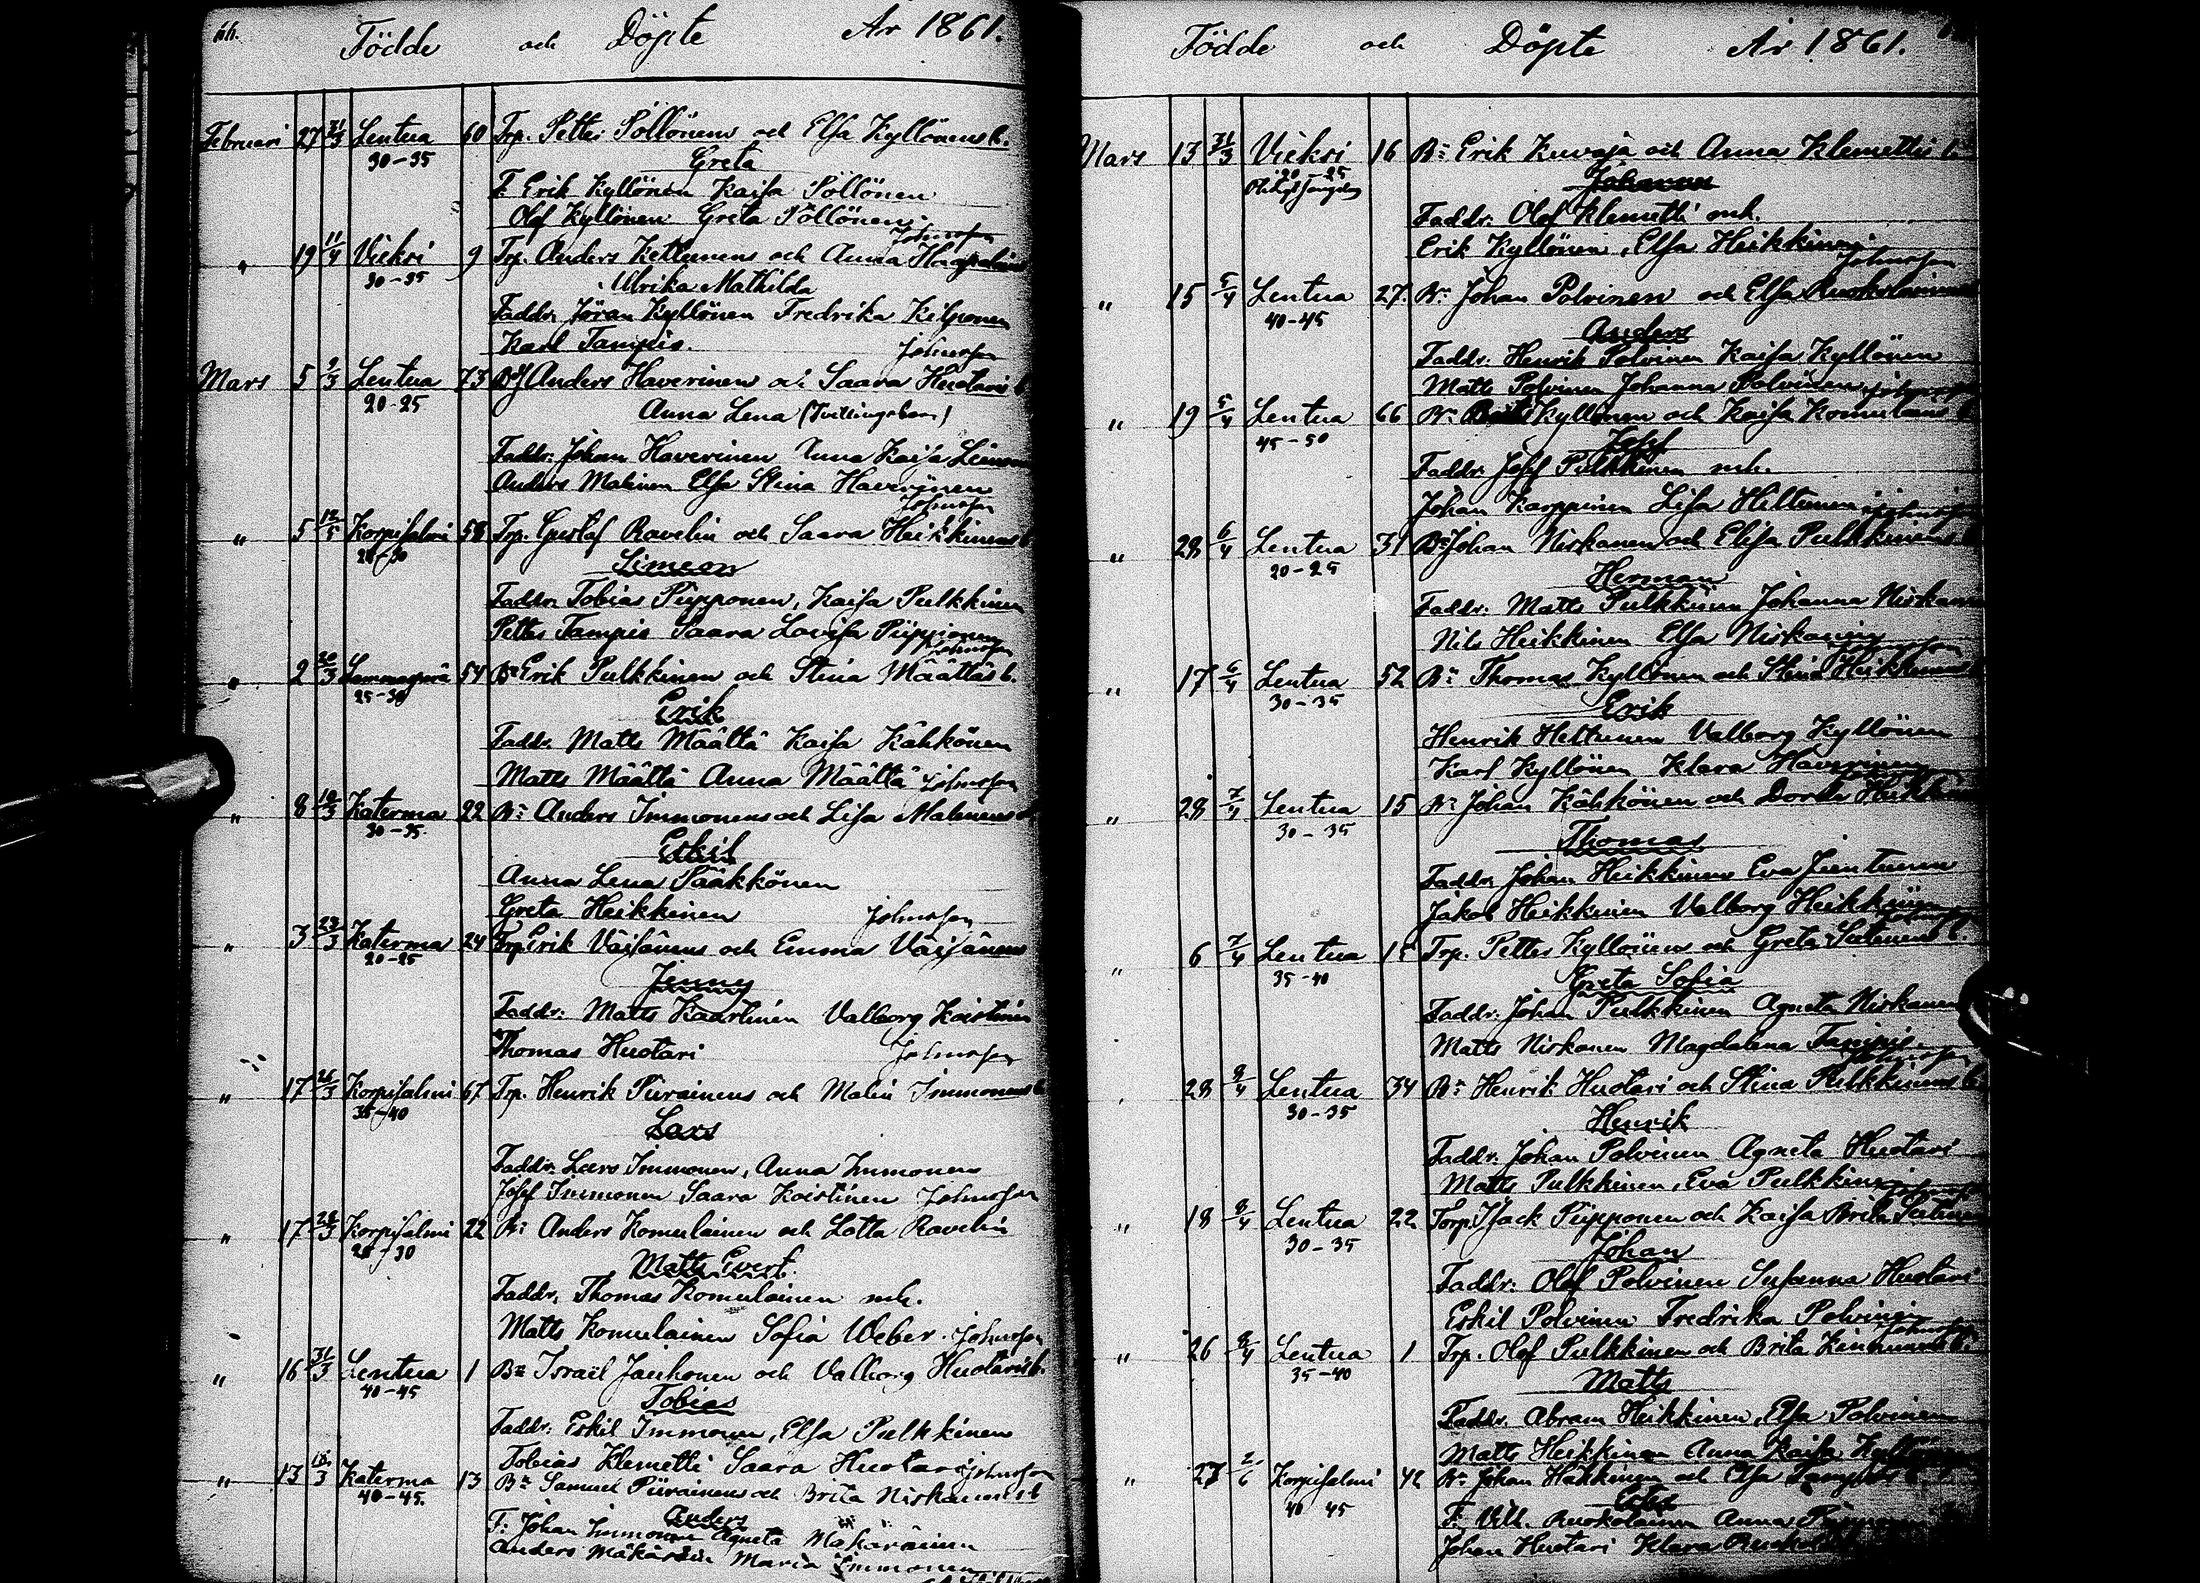 Födde och Döpte År 1861.
Februari 27 31/3 Lentua 60 Trp. Petter Pöllönens och Elsa Kyllönens b.
30-35 Greta
F. Erik Kyllönen Kaisa Pöllönen
Olof Kyllönen Greta Pöllönen
Johnsson
" 19 11/4 Vieksi 9 Trp. Anders Kettunens och Anna
30-35 Ulrika Mathilda
Faddr. Jöran Kyllönen Fredrika Kilponen
Karl Tampio. Johnsson
Mars 5 9/3 Lentua 73 Anders Haverinens och Saara Huotaris b
20-25 Anna Lena (Tvillingebarn)
Faddr: Johan Haverinen Anna Kaisa
Anders Malinen Elsa Stina Haverinen
Johnsson
" 5 12/5 Korpisalmi 58 Trp. Gustaf Ravelin och Saara Heikkinens b
Simeon
Faddr. Tobias Piipponen, Kaisa Pulkkinen
Petter Tampio Saara Lovisa Piipponen
Johnsson
" 2 54 Bn Erik Pulkkinen och Stina Määttäs b.
25-30 Erik
Faddr. Matts Määttä Kaisa Kähkönen
Matts Määttä Anna Määttä Johnsson
" 8 Katerma 22 Bn Anders Immonens och Lisa Malinens b
30-35 Eskil
Anna Lena Pääkkönen
Greta Heikkinen Johnsson
" 3 23/3 Katerma 24 Trp Erik Väisänens och Emma Väisänens
20-25 Jenny
Faddr: Matts Kaartinen Valborg Koistinen
Thomas Huotari Johnsson
" 17 26/3 Korpisalmi 67 Trp. Henrik Piirainens och Malin Immonens b
35-40 Lars
Faddr. Lars Immonen, Anna Immonen
Josef Immonen Saara Koistinen Johnsson
" 17 28/3 Korpisalmi 22 Bn Anders Komulainen och Lotta Ravelin
25-30 Matts Evert.
Faddr. Thomas Komulainen mh.
Matts Komulainen Sofia Weber. Johnsson
" 16 31/3 Lentua 1 Bn Israël Jauhonen och Valborg Huotaris b.
40-45 Tobias
Faddr: Eskil Immonen, Elsa Pulkkinen
Tobias Klemetti Saara Huotari Johnsson
" 13 Katerma 13 Bn Samuel Piirainens och Brita Niskanens b
40-45. Anders
F: Johan Immonen Agneta Makäräinen
Anders Mäkäräin Maria Immonen
Födde och Döpte År 1861.
Mars 13 31/3 Vieksi 16 Bn Erik Kuvaja och Anna Klemettis b
20-25 Johanna
Faddr. Olof Klemetti mh.
Erik Kyllönen, Elsa Heikkinen
Johnsson
" 15 5/4 Lentua 27. Bn Johan Polvinen och Elsa
40-45 Anders
Faddr. Henrik Polvinen Kaisa Kyllönen
Matts Polvinen Johanna Polvinen Johnsson
" 19 5/4 Lentua 66 Bn Kyllönen och Kaisa Komulains b
45-50 Josef
Faddr. Josef Pulkkinen mh.
Johan Karppinen Lisa Hiltunen Johnsson
" 28 6/4 Lentua 31 Bn Johan Niskanen och Elisa Pulkkinens b
20-25 Herman
Faddr: Matts Pulkkinen Johanna Niskanen
Nils Heikkinen Elsa Niskanen
Johnsson
" 17 6/4 Lentua 52 Bn Thomas Kyllönen och Stina Heikkinens b
30-35 Erik
Henrik Heltunen Valborg Kyllönen
Karl Kyllönen Klara Haverinen
" 28 7/4 Lentua 15 Bn Johan Kähkönen och Dorde
30-35 Thomas
Faddr. Johan Heikkinen Eva Juntunen
Jakob Heikkinen Valborg Heikkinen
Johnsson
" 6 7/4 Lentua 15 Trp. Petter Kyllönen och Greta
35-40 Greta Sofia
Faddr. Johan Pulkkinen Agneta Niskanen
Matts Niskanen Magdalena Tampio.
Johnsson
28 8/4 Lentua 34 Bn Henrik Huotari och Stina Pulkkinens b.
30-35 Henrik
Faddr: Johan Polvinen Agneta Huotari
Matts Pulkkinen, Eva Pulkkinen
" 18 8/4 Lentua 22 Torp. Isack Piipponen och Kaisa Brita
30-35 Johan
Faddr: Olof Polvinen Susanna Huotari
Eskil Polvinen Fredrika Polvinen
Johnsson
" 26 8/4 Lentua 1 Trp. Olof Pulkkinen och Brita Kinnunens b.
35-40 Matts
Faddr. Abram Heikkinen, Elsa Polvinen
Matts Heikkinen Anna Kaisa
" 27 2/6 Korpisalmi 42 Bn Johan Hakkinen och Elsa
40 45
F. Vilh. Ruokolainen Anna
Johan Huotari Klara